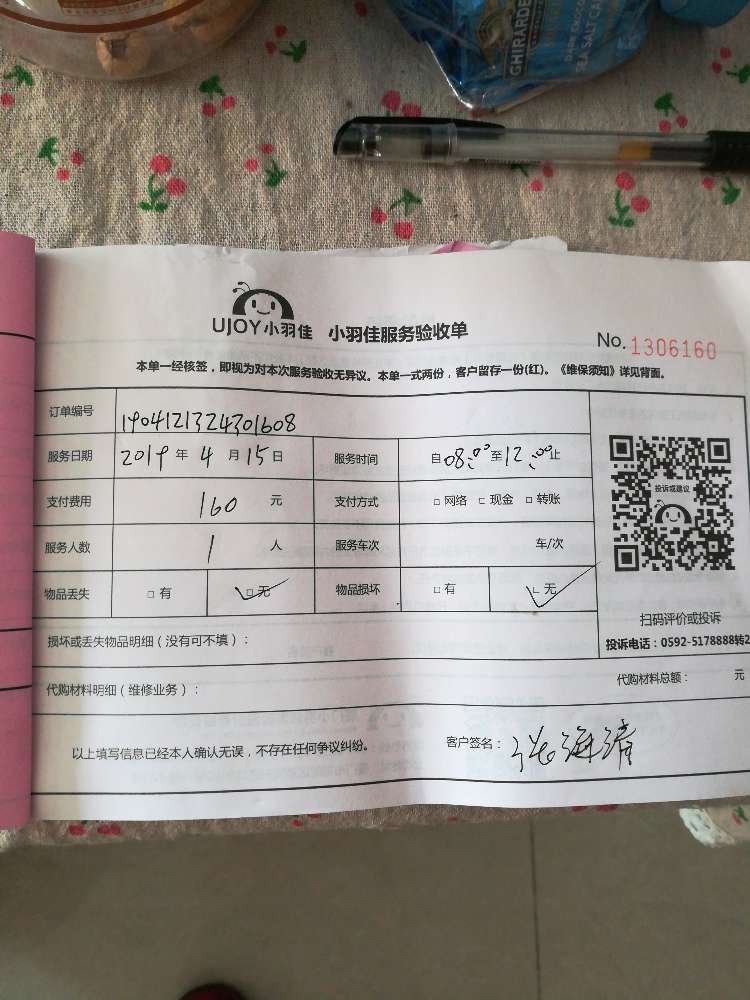 GHIRARDE
DARK CHOCO
SEA SALT CA
UJOY小羽佳 小羽佳服务验收单
No. 1306160
本单一经核签，即视为对本次服务验收无异议。本单一式两份，客户留存一份(红)。《维保须知》详见背面。
订单编号 1904121324301608
服务日期 2019年4月15日 服务时间 自08:00至12:00止
支付费用 160元 支付方式 □网络 □现金 □转账
服务人数 1人 服务车次 车/次
物品丢失 □有 □无 物品损坏 □有 □无
投诉或建议
扫码评价或投诉
投诉电话：0592-5178888转2
损坏或丢失物品明细（没有可不填）：
代购材料明细（维修业务）： 代购材料总额： 元
以上填写信息已经本人确认无误，不存在任何争议纠纷。 客户签名：